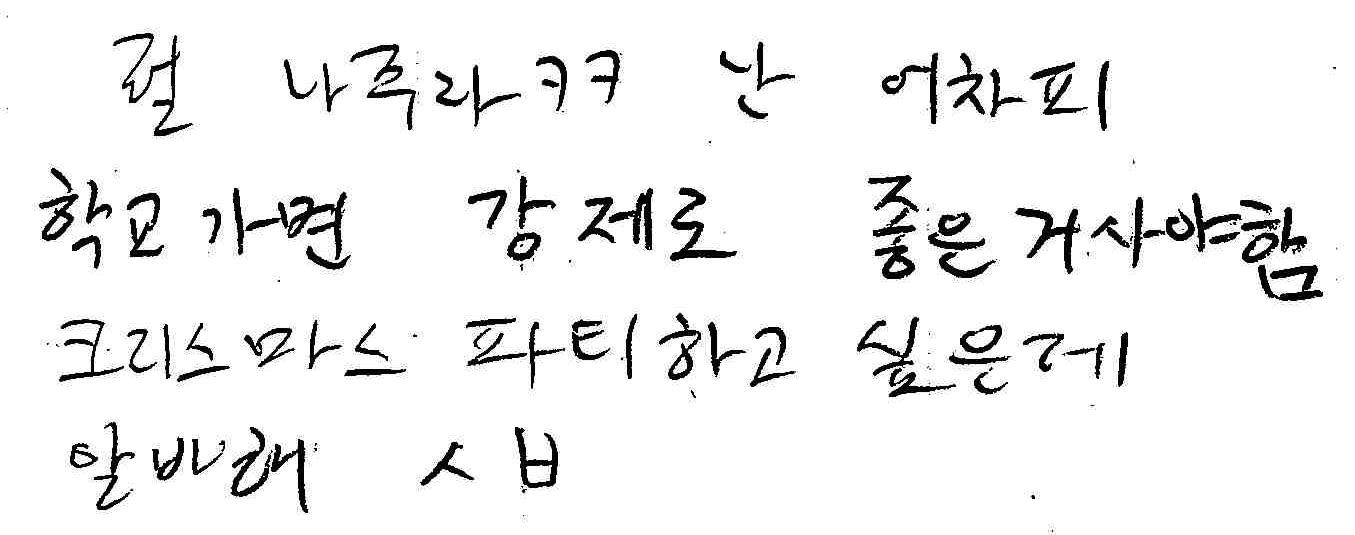 럴 나주라ㅋㅋ 난 어차피
학교가면 강제로 좋은거사야함
크리스마스 파티하고 싶은데
알바해 ㅅㅂ